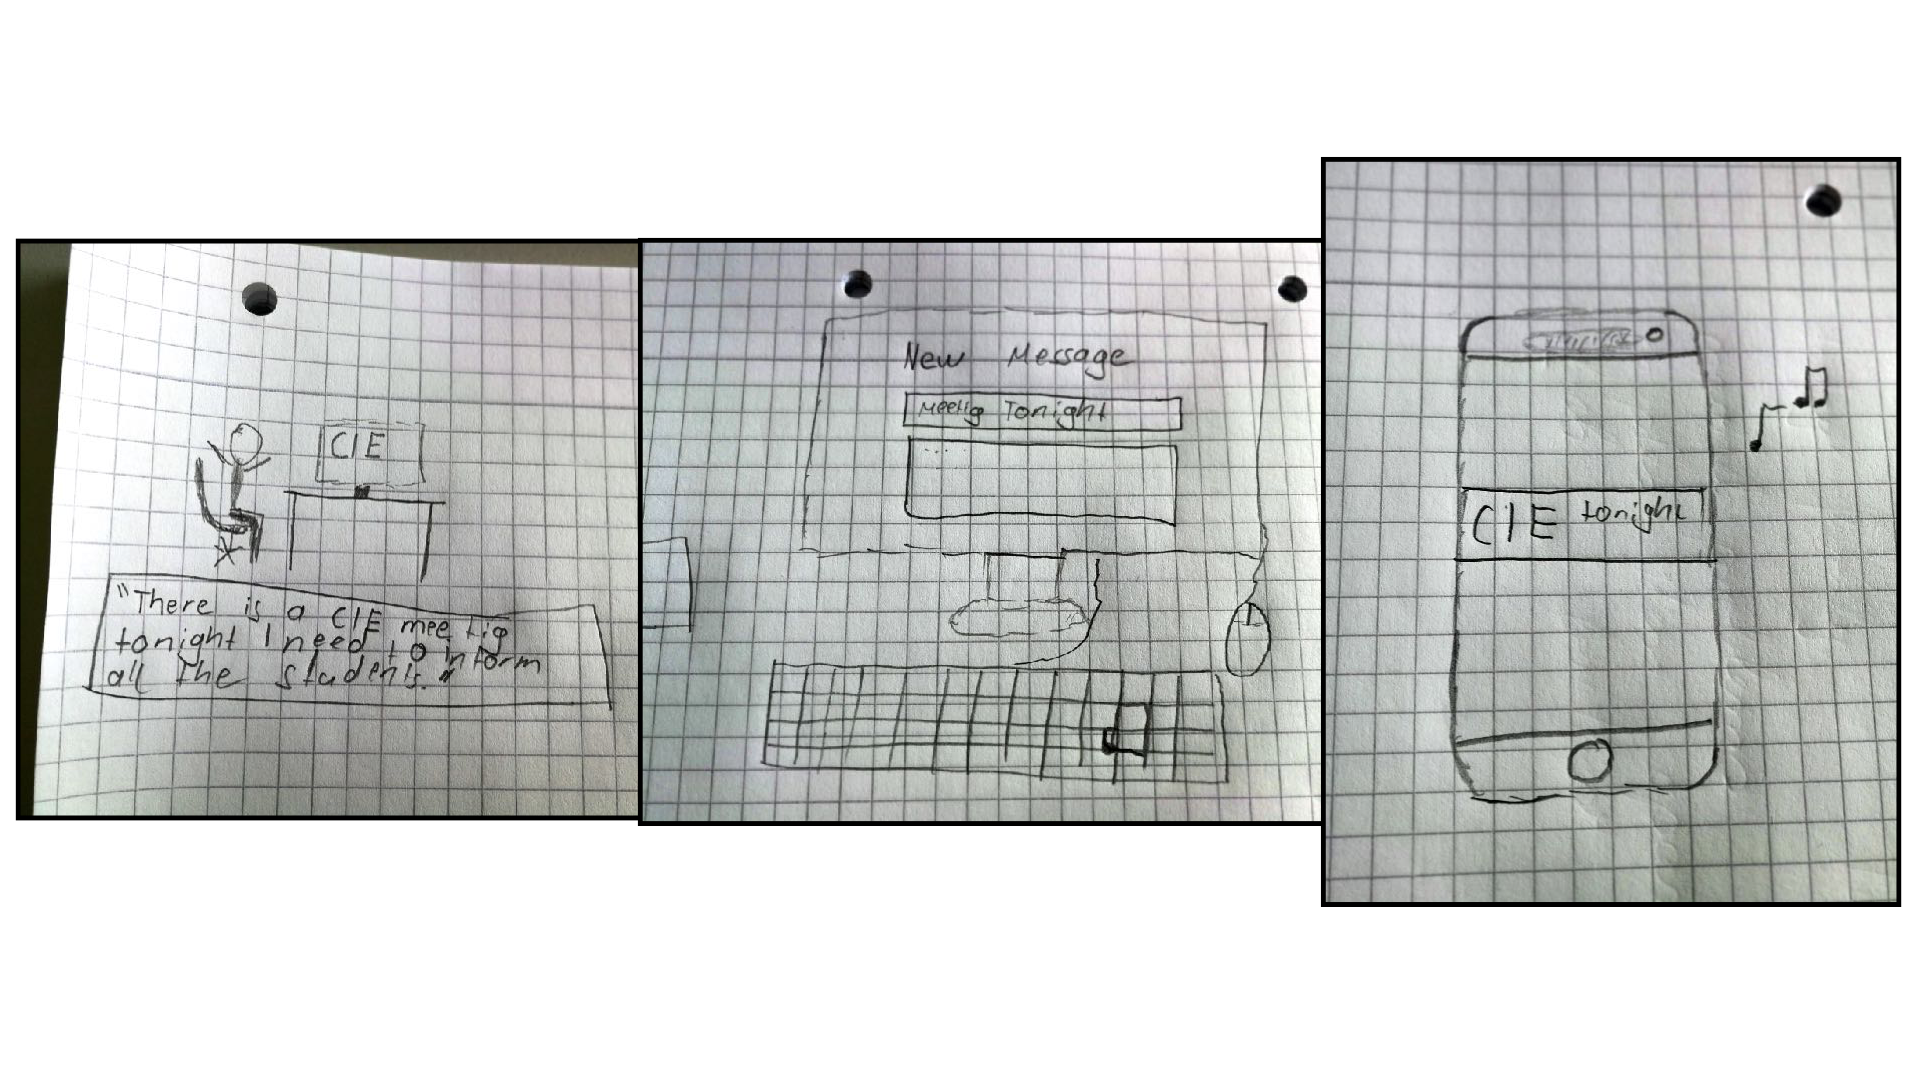 CIE
"There is a CIE meetig
tonight I need to inform
all the students."
New Message
Meetig Tonight
...
CIE tonight